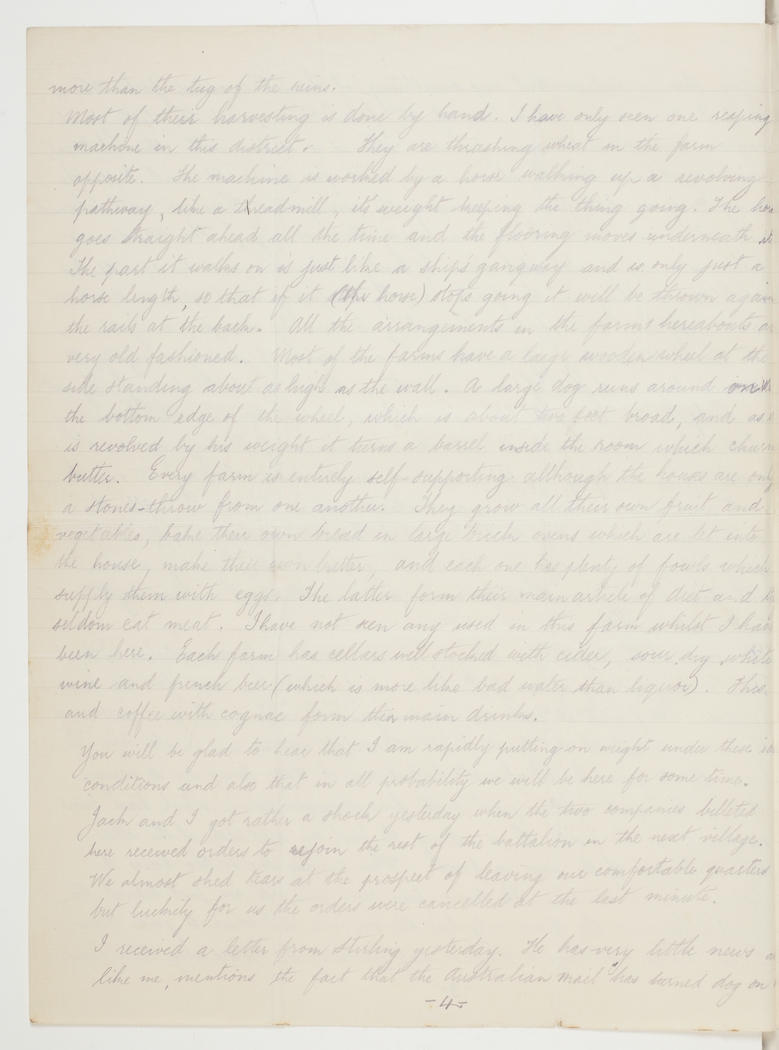 more than the tug of the reins.
Most of their harvesting is done by hand. I have only seen one reaping
machine in this district. They are thrashing wheat in the farm
opposite. The machine is worked by a horse walking up a revolving
pathway, like a treadmill, it's weight keeping the thing going. The
goes straight ahead all the time and the flooring moves underneath it
The part it walks on is just like a ship's gangway and is only just a
horse length, so that if it (the horse) stops going it will be thrown again
the rails at the back. All the arrangements in the farms hereabouts
very old fashioned. Most of the farms have a large wooden wheel at the
side standing about as high as the wall. A large dog runs around on
the bottom edge of the wheel, which is about two foot broad, and as
is revolved by his weight it turns a barrel inside the room which churn
butter. Every farm is entirely self-supporting although the houses are only
a stones-throw from one another. They grow all their own fruit and
vegetables, bake their own bread in large brick ovens which are let into
the house, make their own butter, and each one has plenty of fowls which
supply them with eggs. The latter form their main article of diet and
seldom eat meat. I have not seen any used in this farm whilst I have
been here. Each farm has cellars well stocked with cider, sour dry white
wine and french beer (which is more like bad water than liquor). This
and coffee with cognac form their main drinks.
You will be glad to hear that I am rapidly putting-on weight under these
conditions and also that in all probability we will be here for some time.
Jack and I got rather a shock yesterday when the two companies billeted
here received orders to rejoin the rest of the battalion in the next village.
We almost shed tears at the prospect of leaving our comfortable quarters
but luckily for us the orders were cancelled at the last minute.
I received a letter from Stirling yesterday. He has very little news
like me, mentions the fact that the Australian mail has turned dog on
-4-